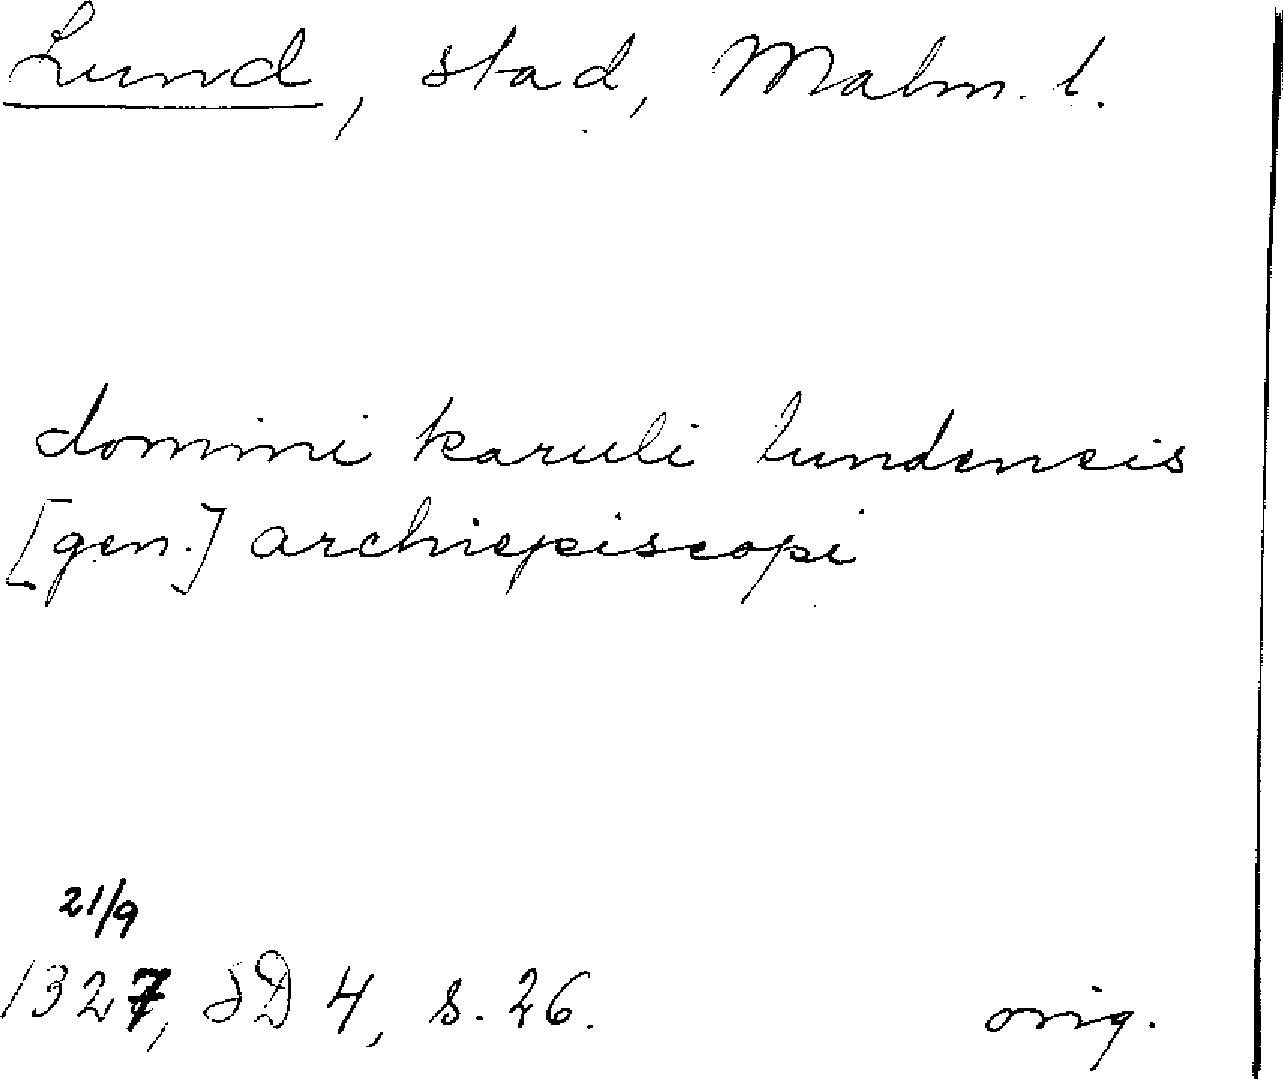 Lund, stad, Malm. l.
domini karuli lundensis
[gen.] archiepiscopi
21/9
1327, SD 4, s. 26.
orig.